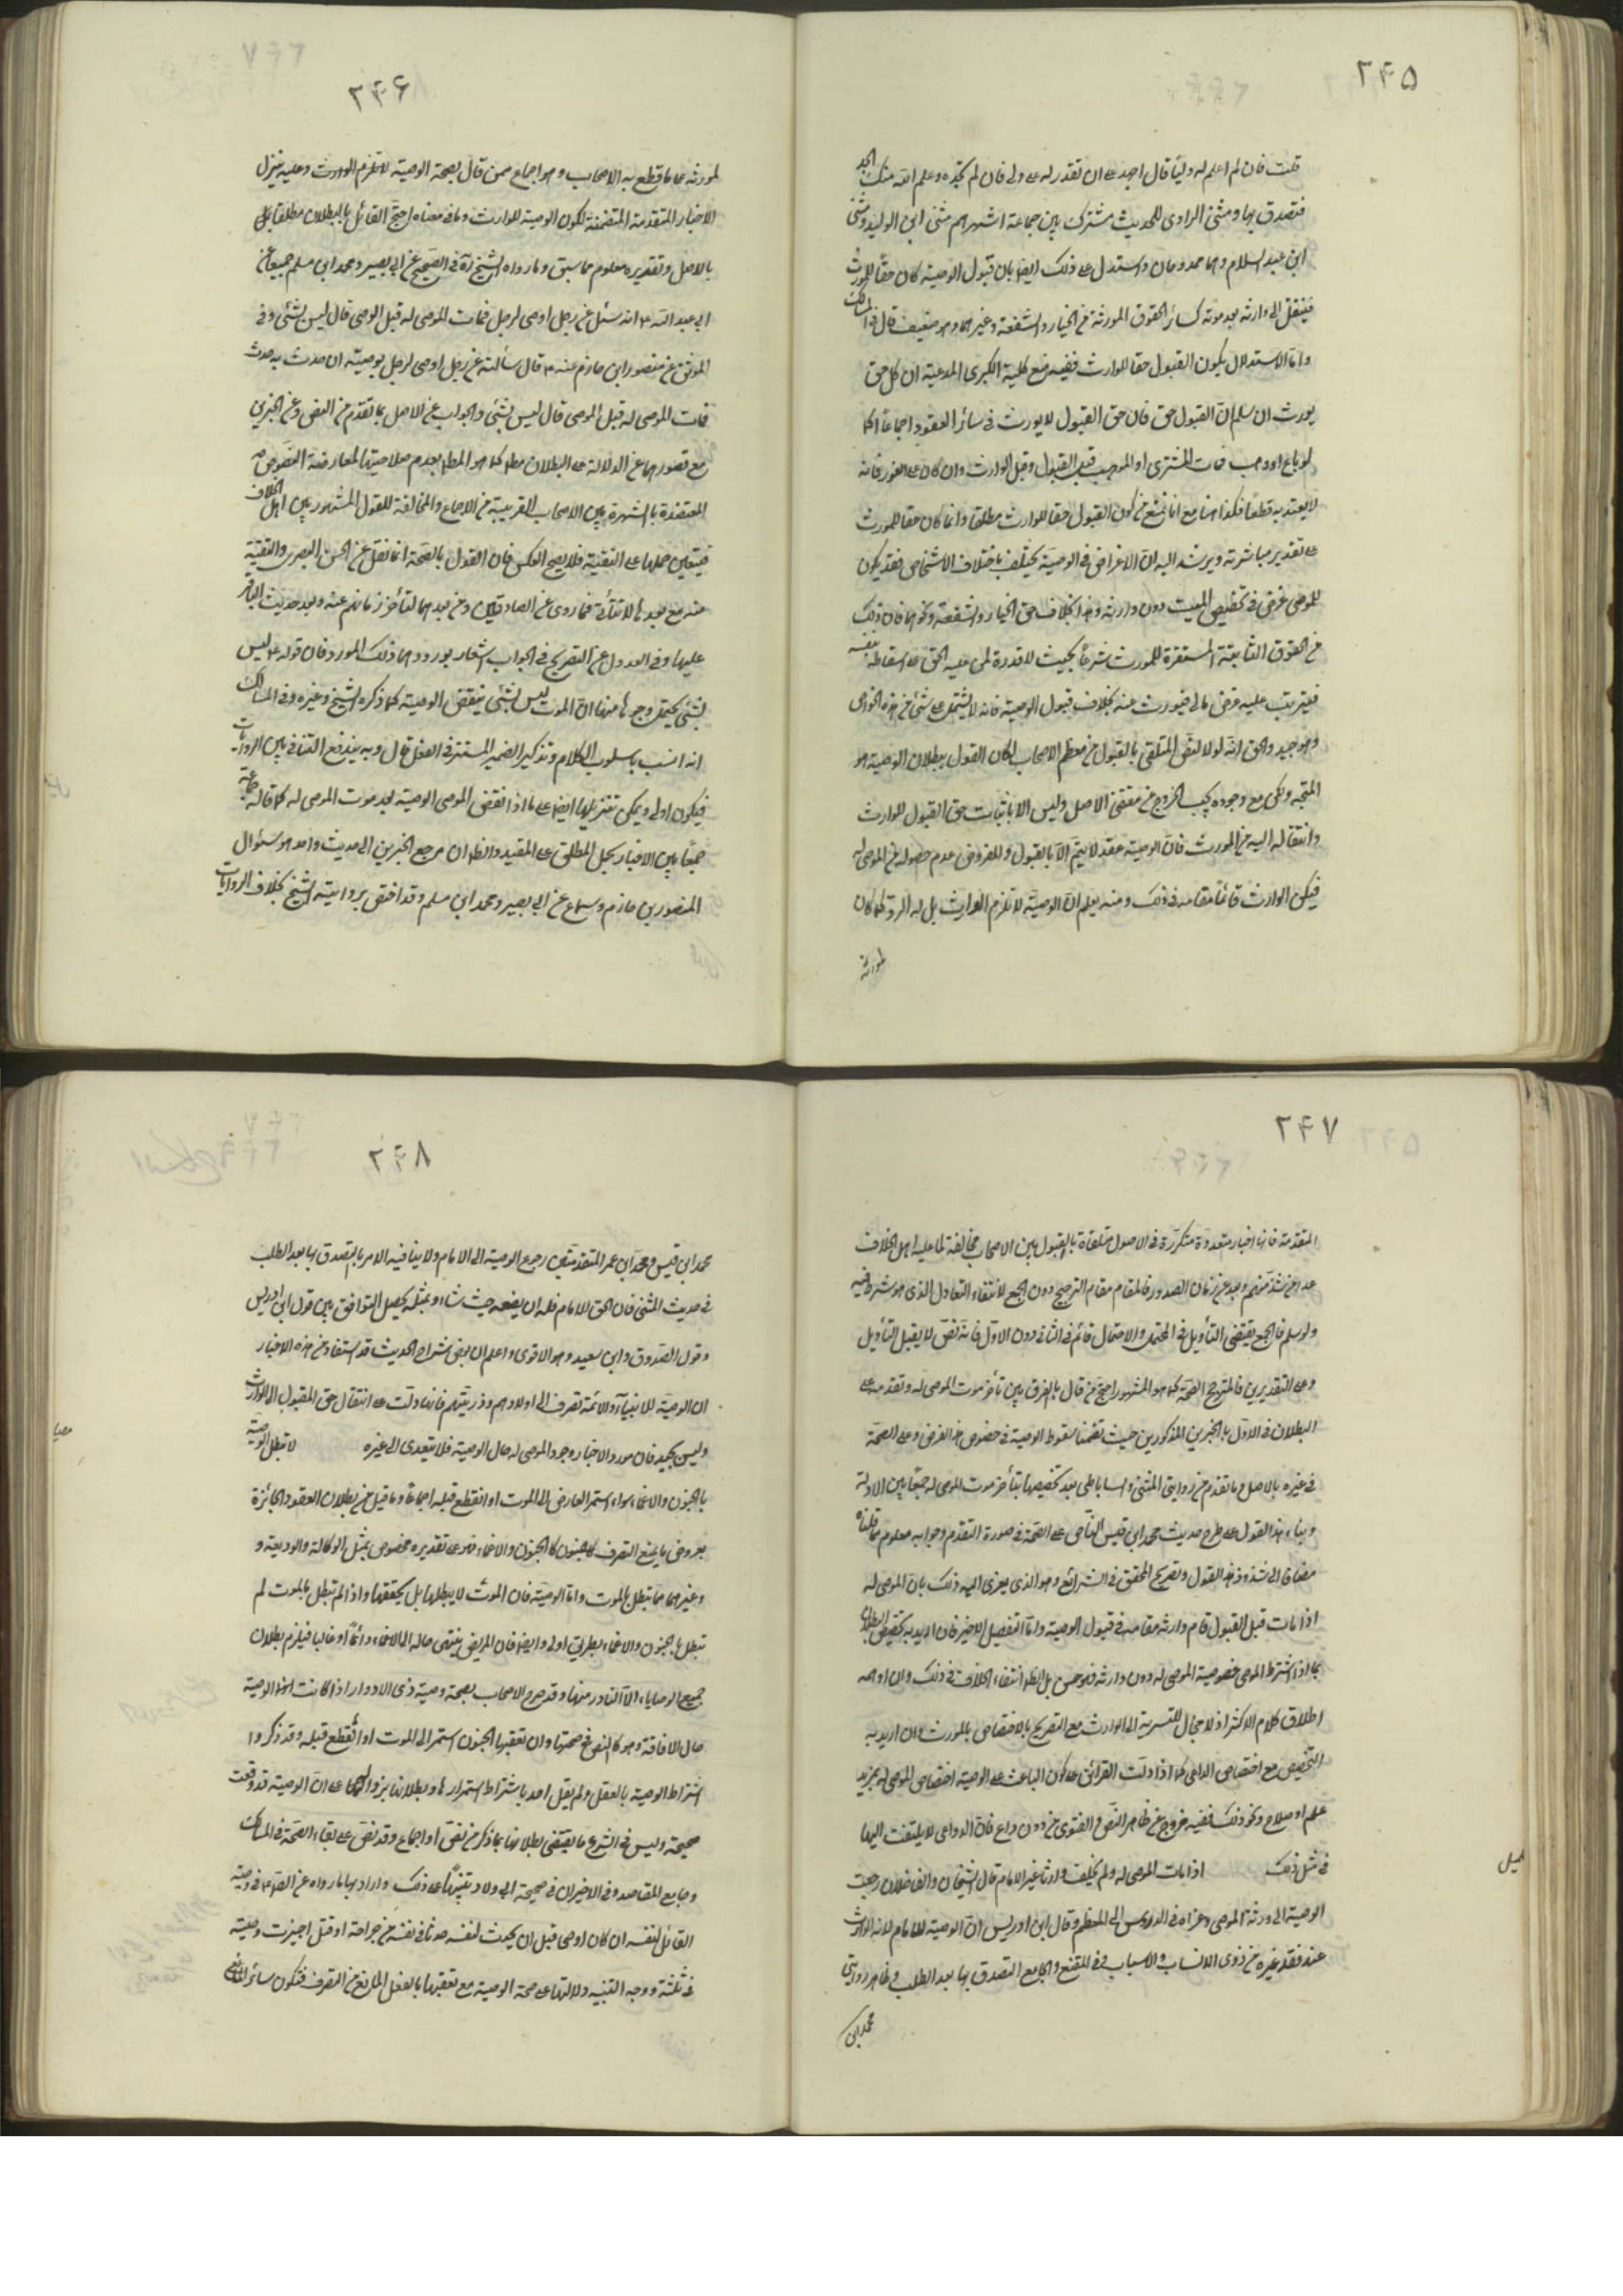 ۲۴۵
قلت فان لم اعلم له وليا قال اجهد على ان تقدر له على ولى فان لم تجده وعلم الله منك الجد
فتصدق بها ومثنى الراوى للحديث مشترك بين جماعة اشهرهم مثنى ابن الوليد ومثنى
ابن عبد السلام وهما ممدوحان واستدل على ذلك ايضا بان قبول الوصية كان حقا للمورث
فينتقل الى وارثه بعد موته كسائر الحقوق المورثة من الخيار والشفعة وغيرهما وهو ضعيف قال فى المسالك
واما الاستدلال بكون القبول حقا للوارث ففيه منع كلية الكبرى المدعية ان كل حق
يورث ان سلم ان القبول حق فان حق القبول لا يورث فى سائر العقود اجماعا كما
لو باع او وهب فمات المشترى او الموهوب قبل القبول وقبل الوارث وان كان على الفور فانه
لا يعتد به قطعا فكذا هنا مع انا نمنع من كون القبول حقا للوارث مطلقا وانما كان حقا للمورث
على تقدير مباشرته ويرشد اليه ان الاغراض فى الوصية يختلف باختلاف الاشخاص فقد يكون
للموصى غرض فى تخصيص الميت دون وارثه وهذا بخلاف حق الخيار والشفعة ونحوهما فان ذلك
من الحقوق الثابتة المستقرة للمورث شرعا بحيث لا قدرة لمن عليه الحق على اسقاطه بنفسه
فيترتب عليه غرض مالى فيورث عنه بخلاف قبول الوصية فانه لا يشتمل على شئ من هذه الخواص
وهو جيد والحق انه لولا النص المتلقى بالقبول من معظم الاصحاب لكان القول ببطلان الوصية هو
المتجه ولكن مع وجوده يجب الخروج عن مقتضى الاصل وليس الا باثبات حق القبول للوارث
وانتقاله اليه من المورث فان الوصية عقد لا يتم الا بالقبول والمفروض عدم حصوله من الموصى له
فيكون الوارث قائما مقامه فى ذلك ومنه يعلم ان الوصية لا تلزم الوارث بل له الرد كما كان
لمورثه
۲۴۶
لمورثه على ما قطع به الاصحاب وهو اجماع ممن قال بصحة الوصية لا تلزم الوارث وعليه ينزل
الاخبار المتقدمة المتضمنة لكون الوصية للوارث وما فى معناه احتج القائل بالبطلان مطلقا
بالاصل وتقديره معلوم مما سبق وما رواه الشيخ ره فى الصحيح عن ابى بصير ومحمد ابن مسلم جميعا عن
ابى عبد الله ع انه سئل عن رجل اوصى لرجل فمات الموصى له قبل الموصى قال ليس بشئ وفى
الموثق عن منصور ابن حازم عنه ع قال سألته عن رجل اوصى لرجل بوصية ان حدث به حدث
فمات الموصى له قبل الموصى قال ليس بشئ والجواب عن الاصل بما تقدم من النص وعن الخبرين
مع قصورهما عن الدلالة على البطلان مطلقا كما هو المطلوب بعدم صلاحيتهما لمعارضة النصوص
المعتضدة بالشهرة بين الاصحاب القريبة من الاجماع والمخالفة للقول المشهور بين اهل الخلاف
فيتعين حملها على التقية فلا يصح العكس فان القول بالصحة انما نقل عن الحسن البصرى والتقية
منه مع بعدها لا تتأتى فيما روى عن الصادقين ومن بعدهما لتأخر زمانهم عنه وبعد حديث الباقر
عليها وفى العدول عن التصريح فى الجواب اشعار بورودهما ذلك المورد فان قوله ع ليس
بشئ يحتمل وجوها منها ان الموت ليس بشئ ينقض الوصية كما ذكره الشيخ وغيره وفى المسالك
انه انسب باسلوب الكلام وتذكير الضمير المستتر فى الفعل قال وبه يندفع التنافى بين الروايات
فيكون اولى ويمكن تنزيلها ايضا على ما اذا نقض الموصى الوصية بعد موت الموصى له كما قاله جماعة
جمعا بين الاخبار بحمل المطلق على المقيد والظ ان مرجع الخبرين الى حديث واحد هو سئوال
المنصور بن حازم وسماع عن ابى بصير ومحمد ابن مسلم وقد اختص بروايته الشيخ بخلاف الروايات
۲۴۷
المتقدمة فانها اخبار متعددة متكررة فى الاصول متلقاة بالقبول بين الاصحاب مخالفة لما عليه اهل الخلاف
عدا من شذ منهم وبعد عن زمان الصدور فالمقام مقام الترجيح دون الجمع لانتفاء التعادل الذى هو شرط فيه
ولو سلم فالجمع يقتضى التأويل فى المحتمل والاحتمال قائم فى الثانى دون الاول فانه نص لا يقبل التأويل
وعلى التقديرين فالمتجه الصحة كما هو المشهور احتج من قال بالفرق بين تأخر موت الموصى له وتقدمه على
البطلان فى الاول بالخبرين المذكورين حيث تضمنا سقوط الوصية فى خصوص هذا الفرض وعلى الصحة
فى غيره بالاصل وما تقدم من روايتى المثنى والساباطى بعد تخصيصها بتأخر موت الموصى له جمعا بين الادلة
وبناء هذا القول على طرح حديث محمد ابن قيس الناص على الصحة فى صورة التقدم وجوابه معلوم مما قلناه
مضافا الى شذوذ هذا القول وتصريح المحقق فى الشرائع وهو الذى يعزى اليه ذلك بان الموصى له
اذا مات قبل القبول قام وارثه مقامه فى قبول الوصية واما التفصيل الاخير فان اريد به تخصيص البطلان
بما اذا اشترط الموصى خصوصية الموصى له دون وارثه فهو حسن بل الظ انتفاء الخلاف فى ذلك وان اوهمه
اطلاق كلام الاكثر اذ لا مجال للتسرية الى الوارث مع التصريح بالاختصاص بالمورث وان اريد به
التخصيص مع اختصاص الداعى كما اذا دلت القرائن على كون الباعث على الوصية اختصاص الموصى له بمزيد
علم او صلاح ونحو ذلك ففيه خروج عن ظاهر النص والفتوى من دون داع فان الدواعى لا يلتفت اليها
فى مثل ذلك اذا مات الموصى له ولم يخلف وارثا غير الامام قال الشيخان والفاضلان رجعت
الوصية الى ورثة الموصى وعزاه فى الدروس الى المعظم وقال ابن ادريس ان الوصية للامام لانه الوارث
عند فقد غيره من ذوى الانساب والاسباب وفى المقنع والجامع التصدق بها بعد الطلب وظاهر روايتى
محمد ابن
۲۴۸
محمد ابن قيس ومحمد ابن عمر المتقدمتين رجوع الوصية الى الامام ولا ينافيه الامر بالتصدق بها بعد الطلب
فى حديث المثنى فان الحق للامام فله ان يضعه حيث شاء وبمثله يحصل التوافق بين قول ابن ادريس
وقول الصدوق وابن سعيد وهو الاقوى واعلم ان بعض شراح الحديث قد استفاد من هذه الاخبار
ان الوصية للانبياء والائمة تصرف الى اولادهم وذريتهم فانها دلت على انتقال حق المقبول الى الوارث
وليس بجيد فان مورد الاخبار وجود الموصى له حال الوصية فلا يتعدى الى غيره لا تبطل الوصية
بالجنون والاغماء سواء استمر العارض الى الموت او انقطع قبله اجماعا وما قيل من بطلان العقود الجائزة
بعروض ما يمنع التصرف كالجنون والاغماء فهو على تقديره مخصوص بمثل الوكالة والوديعة و
وغيرهما مما تبطل بالموت واما الوصية فان الموت لا يبطلها بل يحققها واذا لم تبطل بالموت لم
تبطل بالجنون والاغماء بطريق اولى وايضا فان المريض ينتهى حاله الى الاغماء دائما او غالبا فيلزم بطلان
جميع الوصايا الا النادر منها وقد صرح الاصحاب بصحة وصية ذى الادوار اذا كانت الوصية
حال الافاقة وهو كالنص فى صحتها وان تعقبها الجنون استمر الى الموت او انقطع قبله وقد ذكروا
اشتراط الوصية بالعقل ولم يقل احد باشتراط استمراره وبطلانها بزواله على ان الوصية قد وقعت
صحيحة وليس فى الشرع ما يقتضى بطلانها بما ذكر من نص او اجماع وقد نص على بقاء الصحة فى المسالك
وجامع المقاصد وفى الاخيران فى صحيحة ابى ولاد تنبيها على ذلك واراد بها ما رواه عن الصادق ع فى وصية
القاتل لنفسه ان كان اوصى قبل ان يحدث لنفسه حدثا فى نفسه من جراحة او قتل اجيزت وصيته
فى ثلثه ووجه التنبيه دلالتها على صحة الوصية مع تعقبها بالفعل المانع من التصرف فتكون سائر الموانع